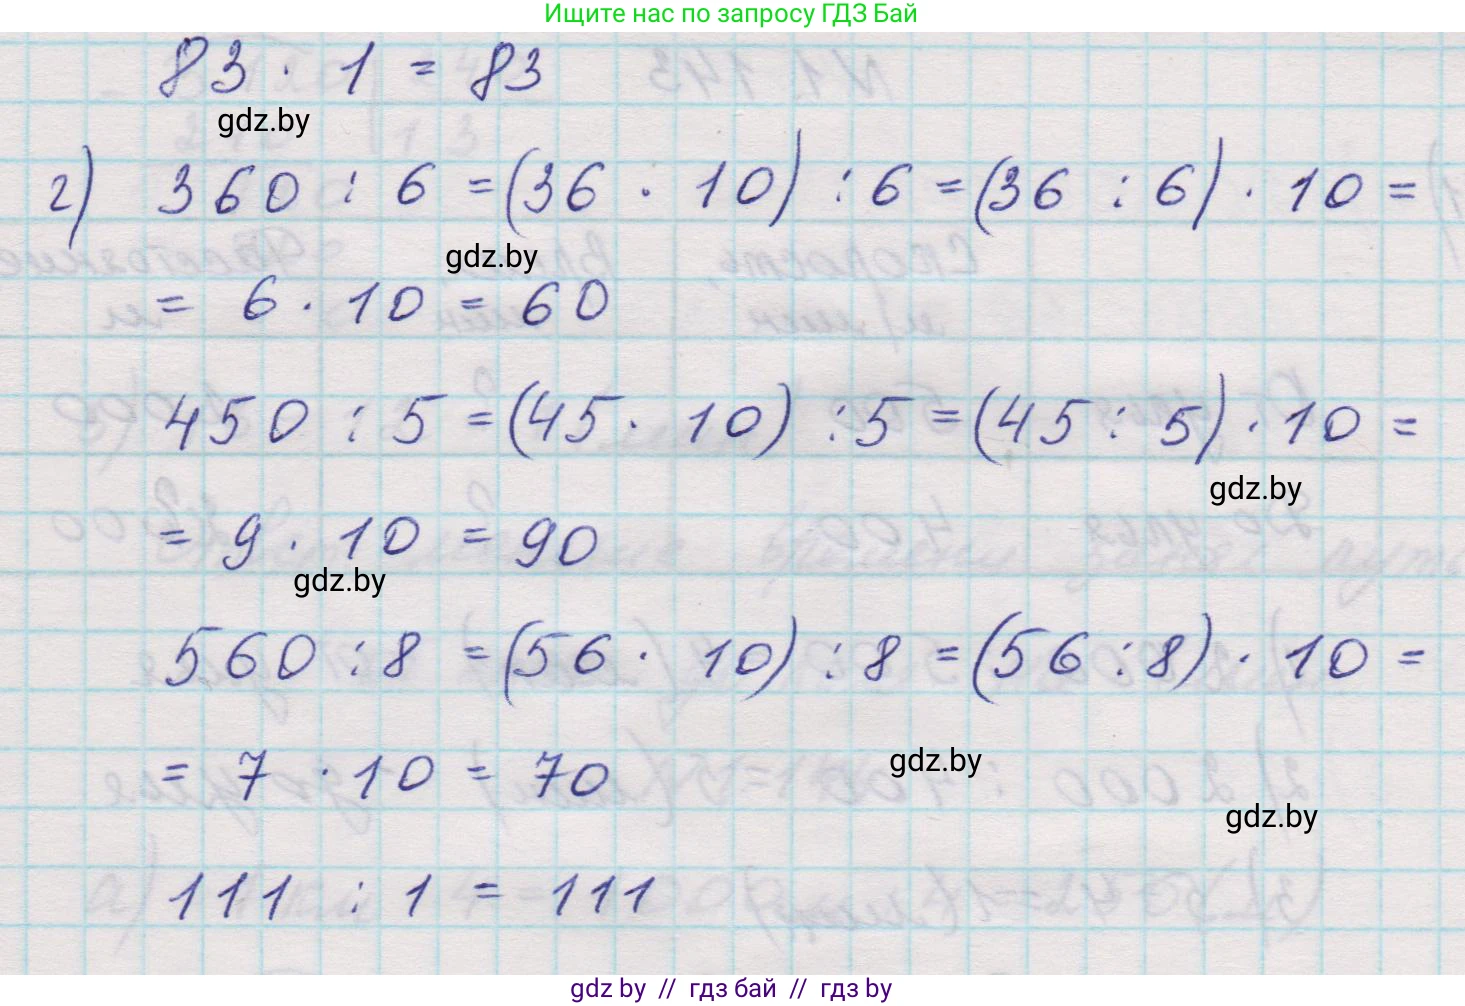 Ищите нас по запросу ГДЗ Бай
83 · 1 = 83
gdz.by
г) 360 : 6 = (36 · 10) : 6 = (36 : 6) · 10 =
gdz.by
= 6 · 10 = 60
450 : 5 = (45 · 10) : 5 = (45 : 5) · 10 =
gdz.by
= 9 · 10 = 90
gdz.by
560 : 8 = (56 · 10) : 8 = (56 : 8) · 10 =
= 7 · 10 = 70
gdz.by
gdz.by
111 : 1 = 111
gdz by // гдз бай // гдз by